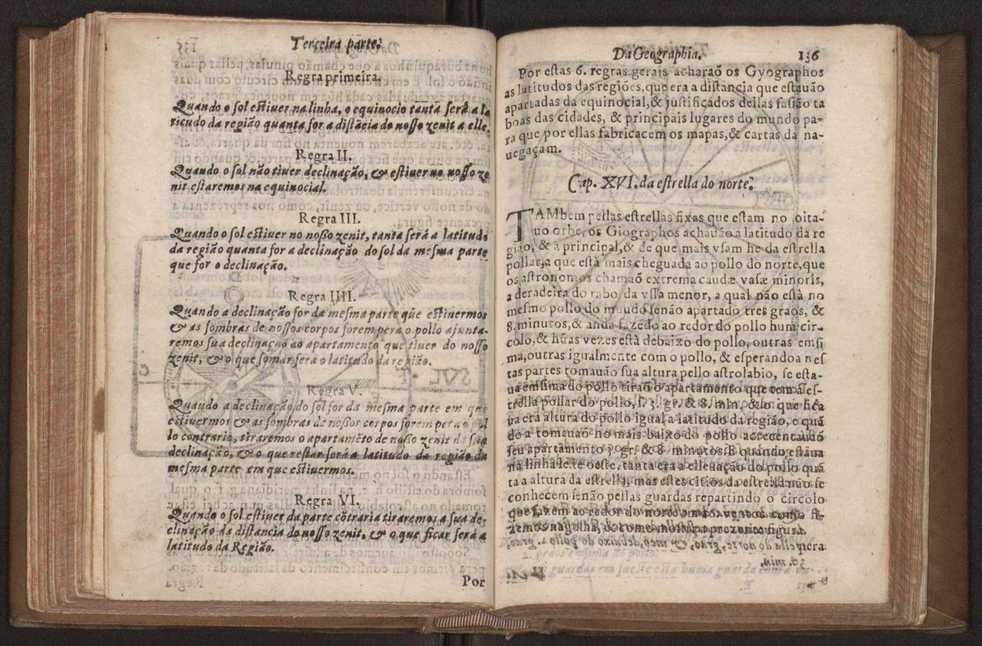 Terceira parte.
Regra primeira.
Quando o sol estiver na linha, o equinocio tanta será a la
titudo da região quanta for a distãcia do nosso zenit a elle.
Regra II.
Quando o sol não tiver declinação, & estiver no nosso ze
nit estaremos na equinocial.
Regra III.
Quando o sol estiver no noßo zenit, tanta será a latitudo
da região quanta for a declinação do sol da mesma parte
que for o declinação.
Regra IIII.
Quando a declinação for da mesma parte que estivermos
& as sombras de nossos corpos forem pera o pollo ajunta-
remos sua declinação ao apartamento que tiver do nosso
zenit, & o que somar será o latitudo da região.
Regra V.
Quando a declinação do sol for da mesma parte em que
estivermos & as sombras de noßos corpos forem pera o pol
lo contrario, tiraremos o apartamẽto de nosso zenit da sua
declinação, & o que restar será a latitudo da região da
mesma parte em que estivermos.
Regra VI.
Quando o sol estiver da parte cõtraria tiraremos a sua de-
clinação da distancia do nosso zenit, & o que ficar será a
latitudo da Região.
Por
Da Geographia. 136
Por estas 6. regras gerais acharaõ os Gyographos
as latitudos das regiões, que era a distancia que estauão
apartadas da equinocial, & justificados dellas fasião ta
boas das cidades, & principais lugares do mundo pa-
ra que por ellas fabricacem os mapas, & cartas da na-
uegaçam.
Cap. XVI. da estrella do norte.
TAMbem pellas estrellas fixas que estam no oita-
uo orbe, os Giographos achauão a latitudo da re
gião, & a principal, & de que mais vsam he da estrella
pollar, a que està mais cheguada ao pollo do norte, que
os astronomos chamaõ extrema caudæ vasæ minoris,
a deradeira do rabo da vssa menor, a qual não està no
mesmo pollo do mundo senão apartado tres graos, &
8. minutos, & anda fazẽdo ao redor do pollo hum cir-
colo, & hũas vezes està debaixo do pollo, outras em si
ma, outras igualmente com o pollo, & esperandoa nes
tas partes tomauão sua altura pello astrolabio, se esta-
ua em sima do pollo tirão o apartamento que tem a es-
trella pollar do pollo, s. 3. gr. & 8. min. & o que fica
va era altura do pollo igual a latitudo da região, e quã
do a tomauaõ no mais baixo do pollo accecentauão
seu apartamento 3. gr. & 8. minotos. E quando estaua
na linha leste oeste, tanta era a elleuação do pollo quã
ta a altura da estrella, mas estes citios da estrella não se
conhecem senão pellas guardas repartindo o circolo
que fazem ao redor do norte
pera